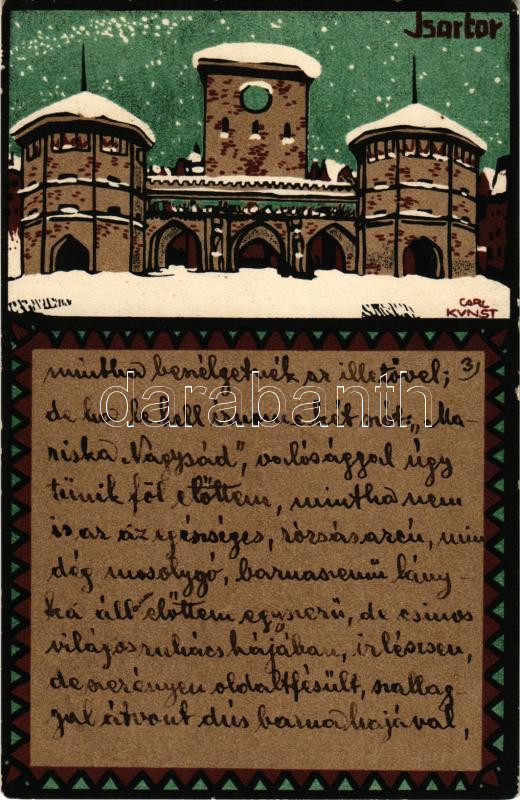 Isartor
CARL
KVNST
3)
mintha beszélgetnék az illetővel;
de ha le kell írnom két szót: „Ma-
riska Nagysád”, valósággal úgy
tűnik föl előttem, mintha nem
is az az egészséges, rózsásarcú, min
dég mosolygó, barnaszemű lány-
ka áll előttem egyszerű, de csinos
világos ruhácskájában, izlésesen,
de szerényen oldaltfésült, szallag-
gal átvont dús barna hajával,
darabanth.com